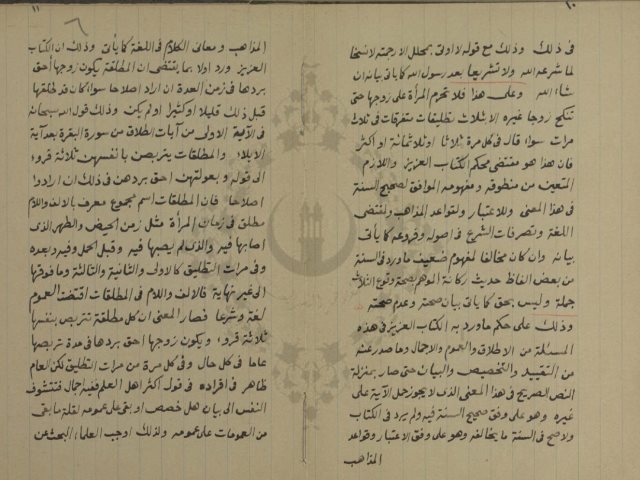 ١٠
فى ذلك وذلك مع قوله لا اوتى بمحلل الا رجمته لا نسخا
لما شرعه الله ولا تشريعا بعد رسول الله كما ياتى بيانه ان
شاء الله وعلى هذا فلا تحرم المرأة على زوجها حتى
تنكح زوجا غيره الا بثلاث تطليقات متفرقات فى ثلاث
مرات سواء قال فى كل مرة ثلاثا او ثلاثمائة او اكثر
فان هذا هو مقتضى محكم الكتاب العزيز واللازم
المتعين من منطوقه ومفهومه الموافق لصحيح السنة
فى هذا المعنى وللاعتبار ولقواعد المذاهب ولمقتضى
اللغة وتصرفات الشرع فى اصوله وفروعه كما ياتى
بيانه وان كان مخالفا لمفهوم ضعيف ما ورد فى السنة
من بعض الفاظ حديث ركانة الموهم بصحة وقوع الثلاث
جملة وليس بحق كما ياتى بيان صحته وعدم صحته
وذلك على حكم ما ورد به الكتاب العزيز فى هذه
المسئلة من الاطلاق والعموم والاجمال وما صدر عنه
من التقييد والتخصيص والبيان حتى صار بمنزلة
النص الصريح فى هذا المعنى الذى لا يجوز حمل الآية على
غيره وهو على وفق صحيح السنة فيه ولم يرد فى الكتاب
ولا صح فى السنة ما يخالفه وهو على وفق الاعتبار وقواعد
المذاهب
١١
٦
المذاهب ومعانى الكلام فى اللغة كما ياتى وذلك ان الكتاب
العزيز ورد اولا بما يقتضى ان المطلقة يكون زوجها أحق
بردها فى زمن العدة ان اراد اصلاحا سواء كان قد طلقها
قبل ذلك قليلا او كثيرا او لم يكن وذلك قول الله سبحانه
فى الآية الاولى من آيات الطلاق من سورة البقرة بعد آية
الايلاء والمطلقات يتربصن بانفسهن ثلاثة قروء
الى قوله وبعولتهن احق بردهن فى ذلك ان ارادوا
اصلاحا فان المطلقات اسم مجموع معرف بالالف واللام
مطلق فى زمان المرأة مثل زمن الحيض والطهر الذى
اصابها فيه والذى لم يصبها فيه وقبل الحمل وفيه وبعده
وفى مرات التطليق كالاولى والثانية والثالثة وما فوقها
الى غير نهاية فالالف واللام فى المطلقات اقتضت العموم
لغة وشرعا فصار المعنى ان كل مطلقة تتربص بنفسها
ثلاثة قروء ويكون زوجها احق بردها فى مدة تربصها
عاما فى كل حال وفى كل مرة من مرات التطليق لكن العام
ظاهر فى افراده فى قول اكثر اهل العلم ففيه اجمال فتتشوف
النفس الى بيان هل خصص او بقى على عمومه لقلة ما بقى
من العمومات على عمومه ولذلك اوجب العلماء البحث عن